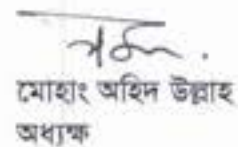 মোহাং অহিদ উল্লাহ
অধ্যক্ষ